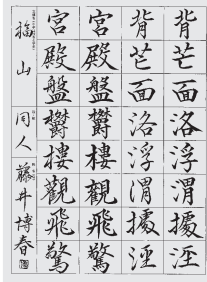 背芒面洛浮渭據涇
背芒面洛浮渭據涇
宮殿盤欝樓觀飛驚
宮殿盤欝樓觀飛驚
福山 同人 藤井博春